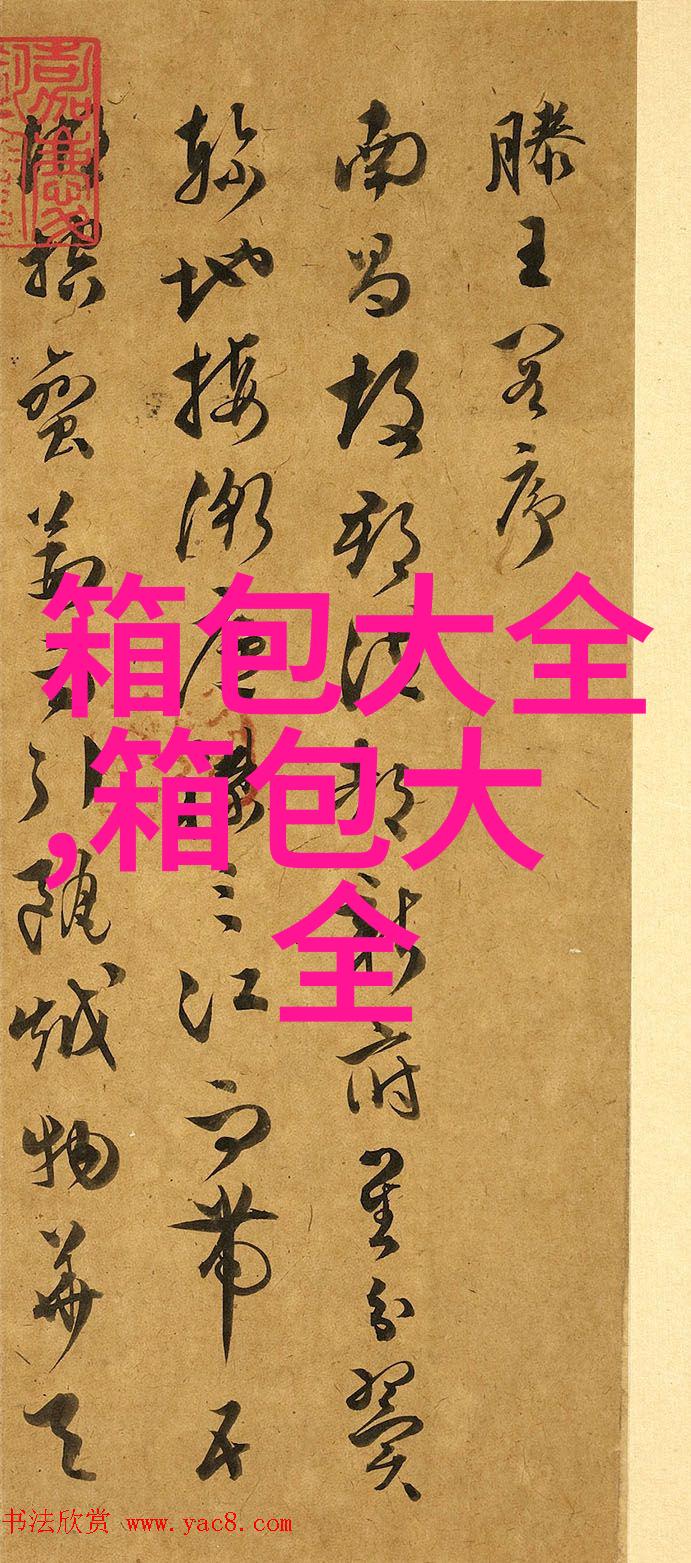 滕王閣序
南昌故郡洪都新府星分翼
軫地接衡廬襟三江而帶五
湖控蠻荊而引甌越物華天
箱包大全
,箱包大
全
书法欣赏 www.yac8.com